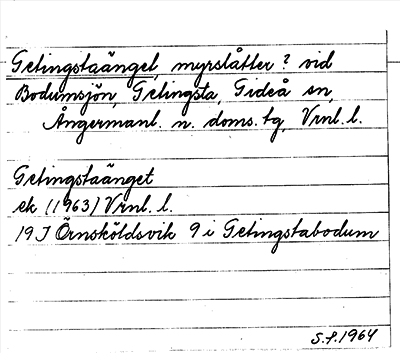 Getingstaänget, myrslåtter? vid
Bodumsjön, Getingsta, Gideå sn,
Ångermanl. n. doms. tg, Vrnl. l.
Getingstaänget
ek (1963) Vrnl. l.
19J Örnsköldsvik 9 i Getingstabodum
S.f. 1964